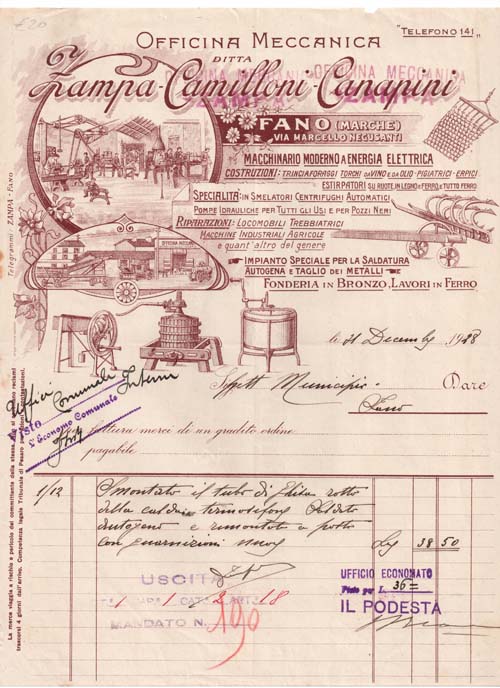 £20
"TELEFONO 141"
OFFICINA MECCANICA
DITTA
OFFICINA MECCANICA OFFICINA MECCANICA
Zampa-Camilloni-Canapini
ZAMPA ZAMPA
FANO (MARCHE)
VIA MARCELLO NEGUSANTI
MACCHINARIO MODERNO A ENERGIA ELETTRICA
COSTRUZIONI: TRINCIAFORAGGI TORCHI DA VINO E DA OLIO-PIGIATRICI-ERPICI
ESTIRPATORI SU RUOTE IN LEGNO E FERRO E TUTTO FERRO
SPECIALITÀ: IN SMELATORI CENTRIFUGHI AUTOMATICI
POMPE IDRAULICHE PER TUTTI GLI USI E PER POZZI NERI
RIPARAZIONI: LOCOMOBILI TREBBIATRICI
MACCHINE INDUSTRIALI AGRICOLE
e quant'altro del genere
IMPIANTO SPECIALE PER LA SALDATURA
AUTOGENA E TAGLIO DEI METALLI
FONDERIA IN BRONZO, LAVORI IN FERRO
OFFICINA MECCANICA
Telegrammi: ZAMPA-FANO
li 31 Decemb 1928
Spett Municipio Dare
Fano
Uffici Comunali Interni
Visto
L'Economo Comunale
fattura merci di un gradito ordine
pagabile
1/12 Smontato il tubo di rotto
della caldaia termosifone Saldato
autogeno e rimontato a posto
con guarnizioni nuove 38 50
USCITA
CAT. ART.
MANDATO N. 190
UFFICIO ECONOMATO
Visto per L. 36=
IL PODESTÀ
La merce viaggia a rischio e pericolo del committente della stessa. Non si accettano reclami
trascorsi 4 giorni dall'arrivo. Competenza legale Tribunale di Pesaro per eventuali contestazioni.